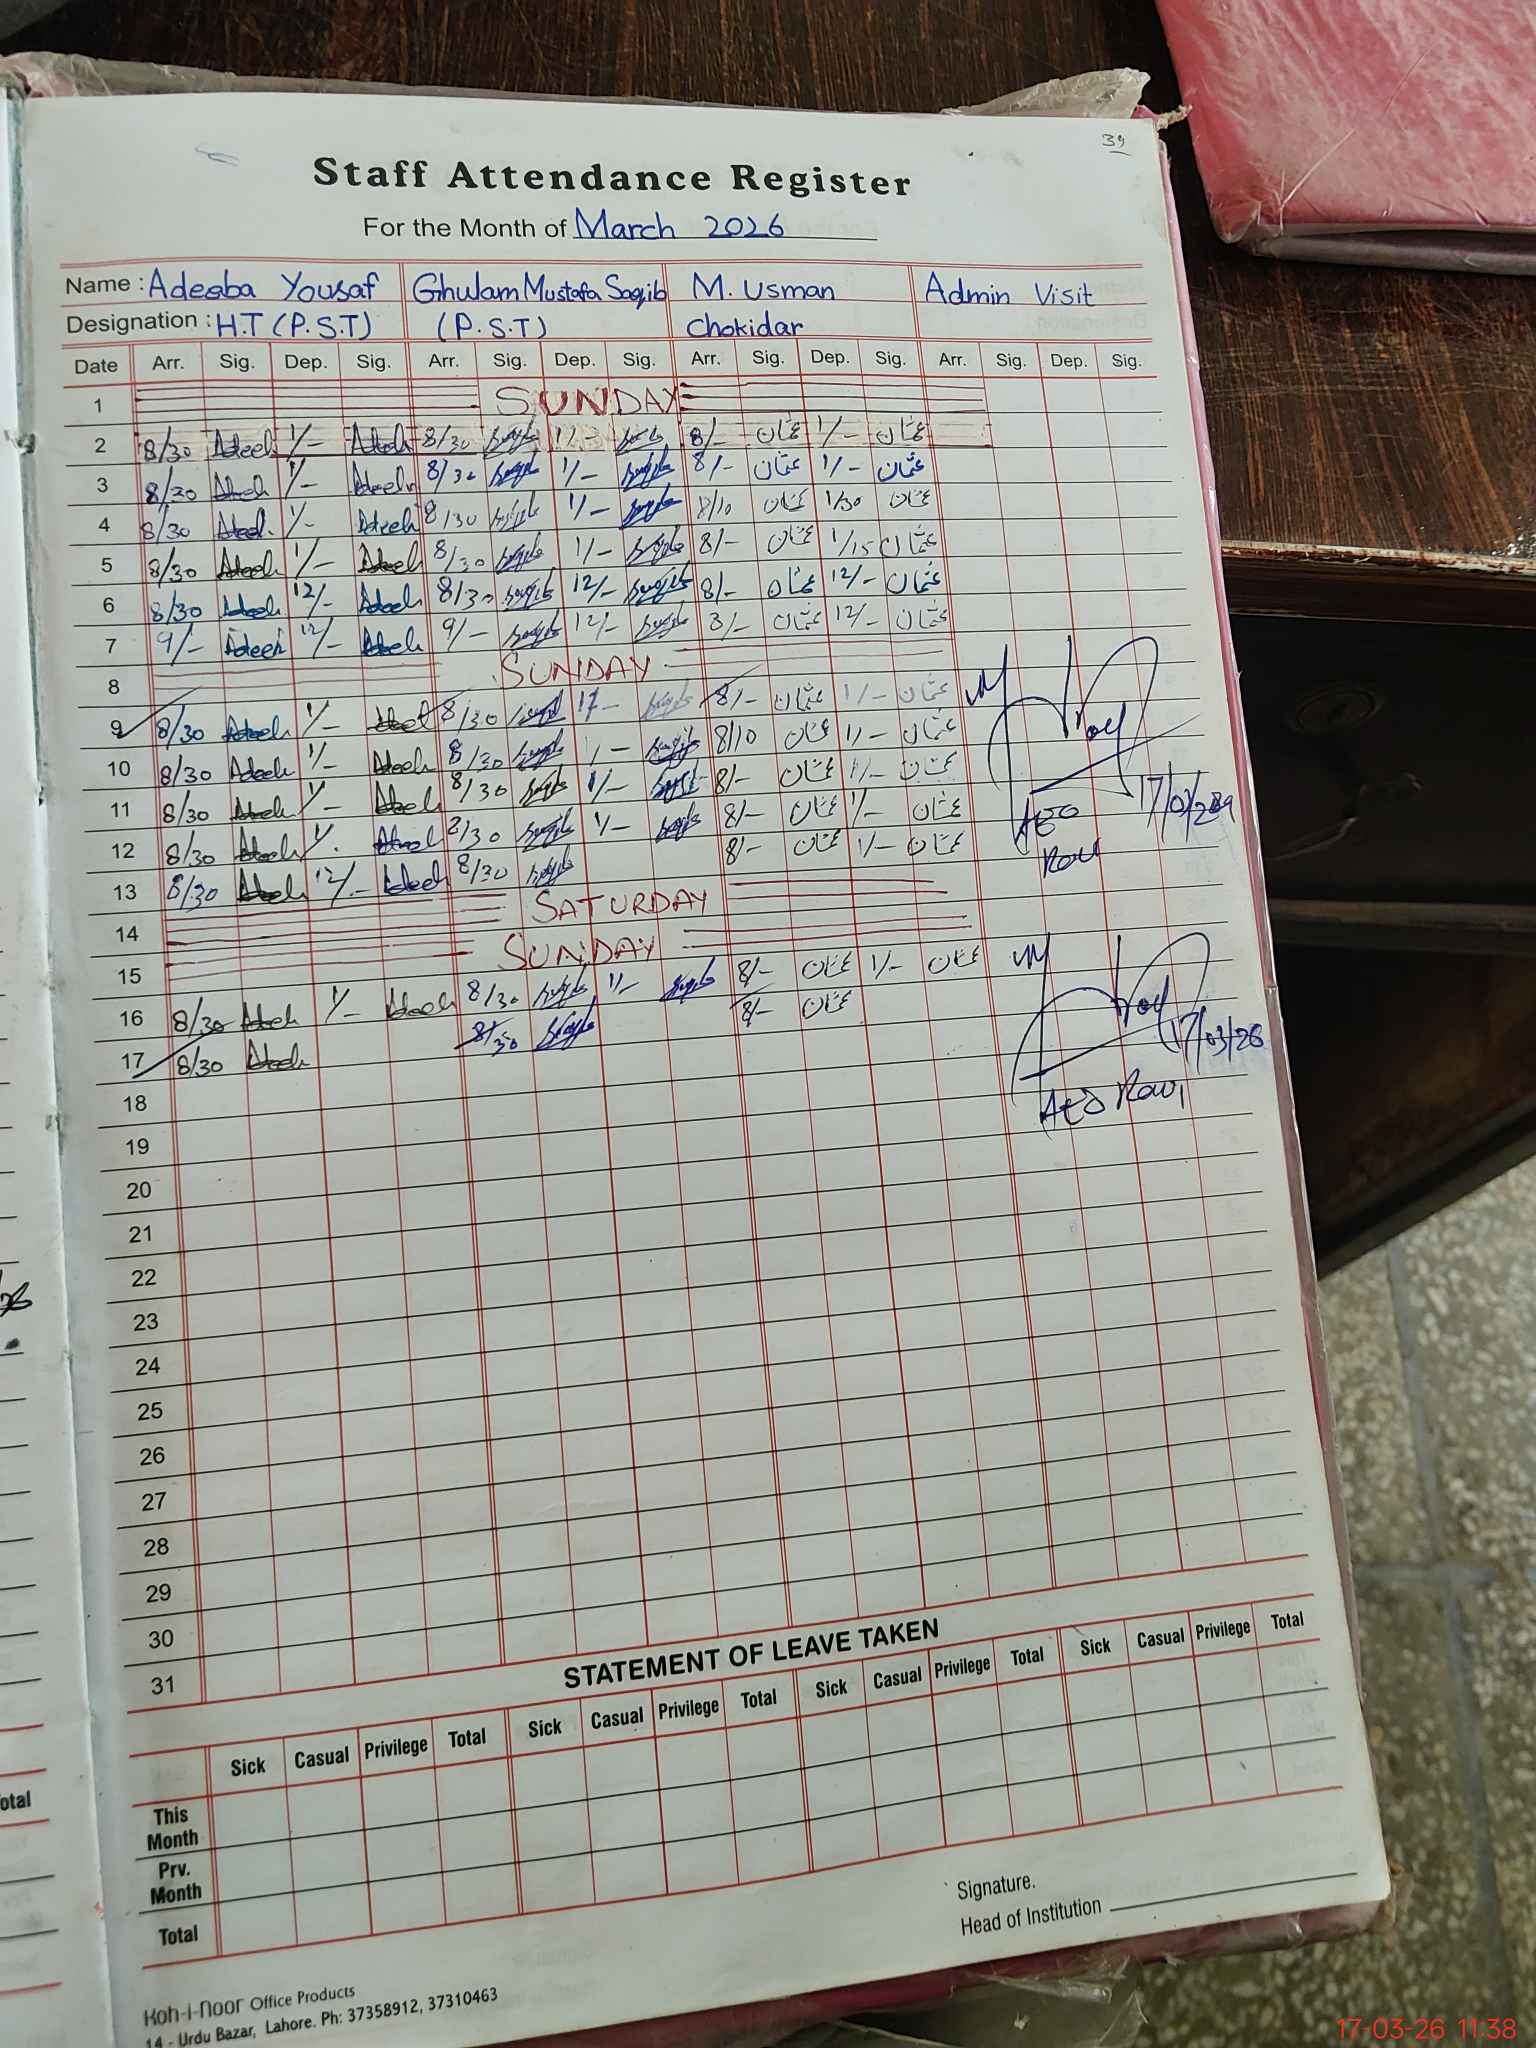 39
Staff Attendance Register
For the Month of March 2026
Name : Adeeba Yousaf Ghulam Mustafa Saqib M. Usman Admin Visit
Designation : H.T (P.S.T) (P.S.T) Chokidar
Date Arr. Sig. Dep. Sig. Arr. Sig. Dep. Sig. Arr. Sig. Dep. Sig. Arr. Sig. Dep. Sig.
1 SUNDAY
2 8/30 Adeeb 1/- Adeeb 8/30 1/- 8/- عثمان 1/- عثمان
3 8/30 Adeeb 1/- Adeeb 8/30 1/- 8/- عثمان 1/- عثمان
4 8/30 Adeeb 1/- Adeeb 8/30 1/- 8/10 عثمان 1/30 عثمان
5 8/30 Adeeb 1/- Adeeb 8/30 1/- 8/- عثمان 1/15 عثمان
6 8/30 Adeeb 12/- Adeeb 8/30 12/- 8/- عثمان 12/- عثمان
7 9/- Adeeb 12/- Adeeb 9/- 12/- 8/- عثمان 12/- عثمان
8 SUNDAY
9 8/30 Adeeb 1/- Adeeb 8/30 8/- عثمان 1/- عثمان
10 8/30 Adeeb 1/- Adeeb 8/30 1/- 8/10 عثمان 1/- عثمان
11 8/30 Adeeb 1/- Adeeb 8/30 1/- 8/- عثمان 1/- عثمان
12 8/30 Adeeb 1/- Adeeb 8/30 1/- 8/- عثمان 1/- عثمان
13 8/30 Adeeb 12/- Adeeb 8/30 8/- عثمان 1/- عثمان
14 SATURDAY
15 SUNDAY
16 8/30 Adeeb 1/- Adeeb 8/30 1/- 8/- عثمان 1/- عثمان
17 8/30 Adeeb 8/30 8/- عثمان
17/03/26
AEO Ravi
18
19
20
21
22
23
24
25
26
27
28
29
30
31
STATEMENT OF LEAVE TAKEN
Sick Casual Privilege Total Sick Casual Privilege Total Sick Casual Privilege Total Sick Casual Privilege Total
This Month
Prv. Month
Total
Signature.
Head of Institution
Koh-i-noor Office Products
14 - Urdu Bazar, Lahore. Ph: 37358912, 37310463
17-03-26 11:38